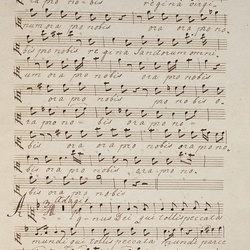 ra pro no - bis regina virgi-
num ora pro nobis ora ora pro no-
bis pro nobis regina Sanctorum omni-
um ora pro nobis ora pro nobis
ora pro nobis ora pro nobis o-
ra pro no - bis ora pro no -
bis ora pro nobis ora pro no -
bis ora pro nobis
adagio
Agnus Dei qui tollis peccata
mundi qui tollis peccata mundi parce